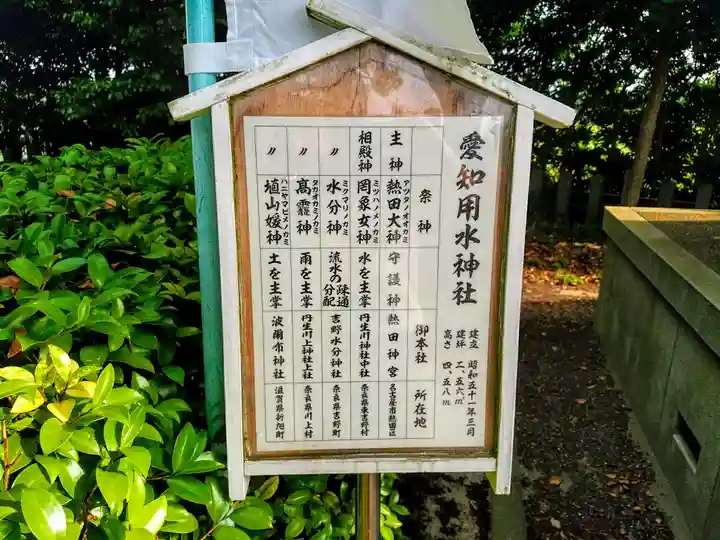 愛知用水神社
建立 昭和五十一年三月
建坪 二、五六㎡
高さ 四、五八m
祭神 御本社 所在地
主神 アツタノオオカミ 熱田大神 守護神 熱田神宮 名古屋市熱田区
相殿神 ミヅハノメノカミ 罔象女神 水を主掌 丹生川神社中社 奈良県東吉野村
〃 ミクマリノカミ 水分神 流水の疎通分配 吉野水分神社 奈良県吉野町
〃 タカオカミノカミ 高靇神 雨を主掌 丹生川上神社上社 奈良県川上村
〃 ハニヤマビメノカミ 埴山媛神 土を主掌 波爾布神社 滋賀県新旭町